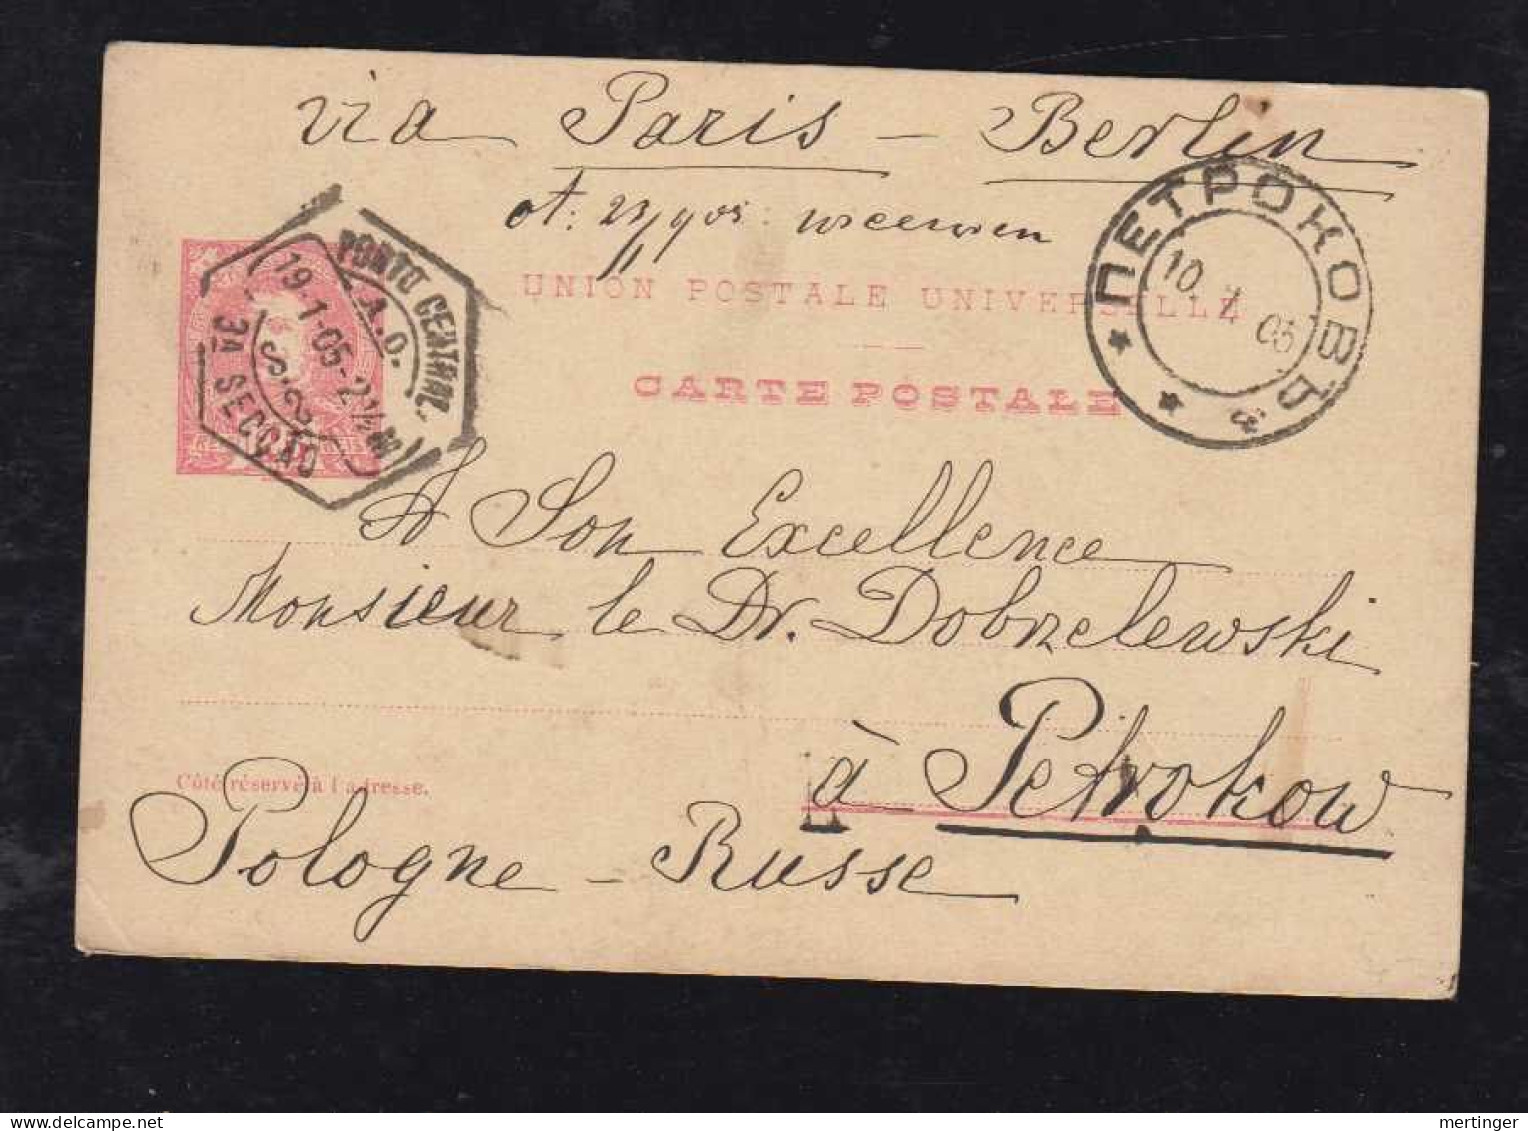 via Paris – Berlin
UNION POSTALE UNIVERSELLE
CARTE POSTALE
PORTO CENTRAL
A.O.
19-1-05-2½
S.2
3A SECÇÃO
ПЕТРОКОВЪ
10 1 05
A Son Excellence
Monsieur le Dr. Dobrzelewski
à Petrokow
Côté réservé à l'adresse.
Pologne – Russe
mertinger